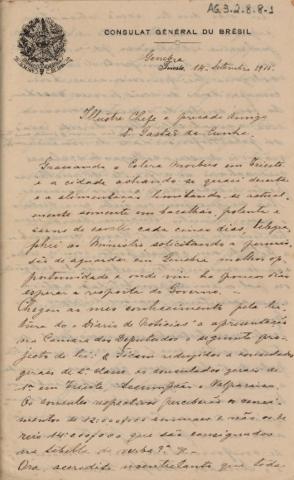 AG.3.2.8.8-1
CONSULAT GÉNÉRAL DU BRÉSIL
Genebra
Suissa, 14 Setembro 1911.
Illustre Chefe e presado Amigo
Dr Gastão da Cunha.
Grassando o Colera Morbus em Trieste
e a cidade achando se quasi deserta
e a alimentação limitando se
mento somente em bacalhau, polenta e
carne de cavallo cada cinco dias, telegra
phei ao Ministro solicitando a permis
são de aguardar em Genebra melhor op
portunidade e onde vim ha poucos dias
esperar a resposta do Governo.
Chegou ao meu conhecimento pela lei
tura do "Diario de Noticias" a apresentação
na Camara dos Deputados o seguinte pro
jecto de lei: "Ficam reduzidos a consulados
geraes de 2ª classe os consulados geraes de
1ª em Trieste, Assumpção e Valparaiso.
Os consules respectivos perceberão os venci
mentos de 12:000$000 annuaes e não os de
reis 14:000$000 que são consignados
na tabella da verba
Ora, acredito que toda